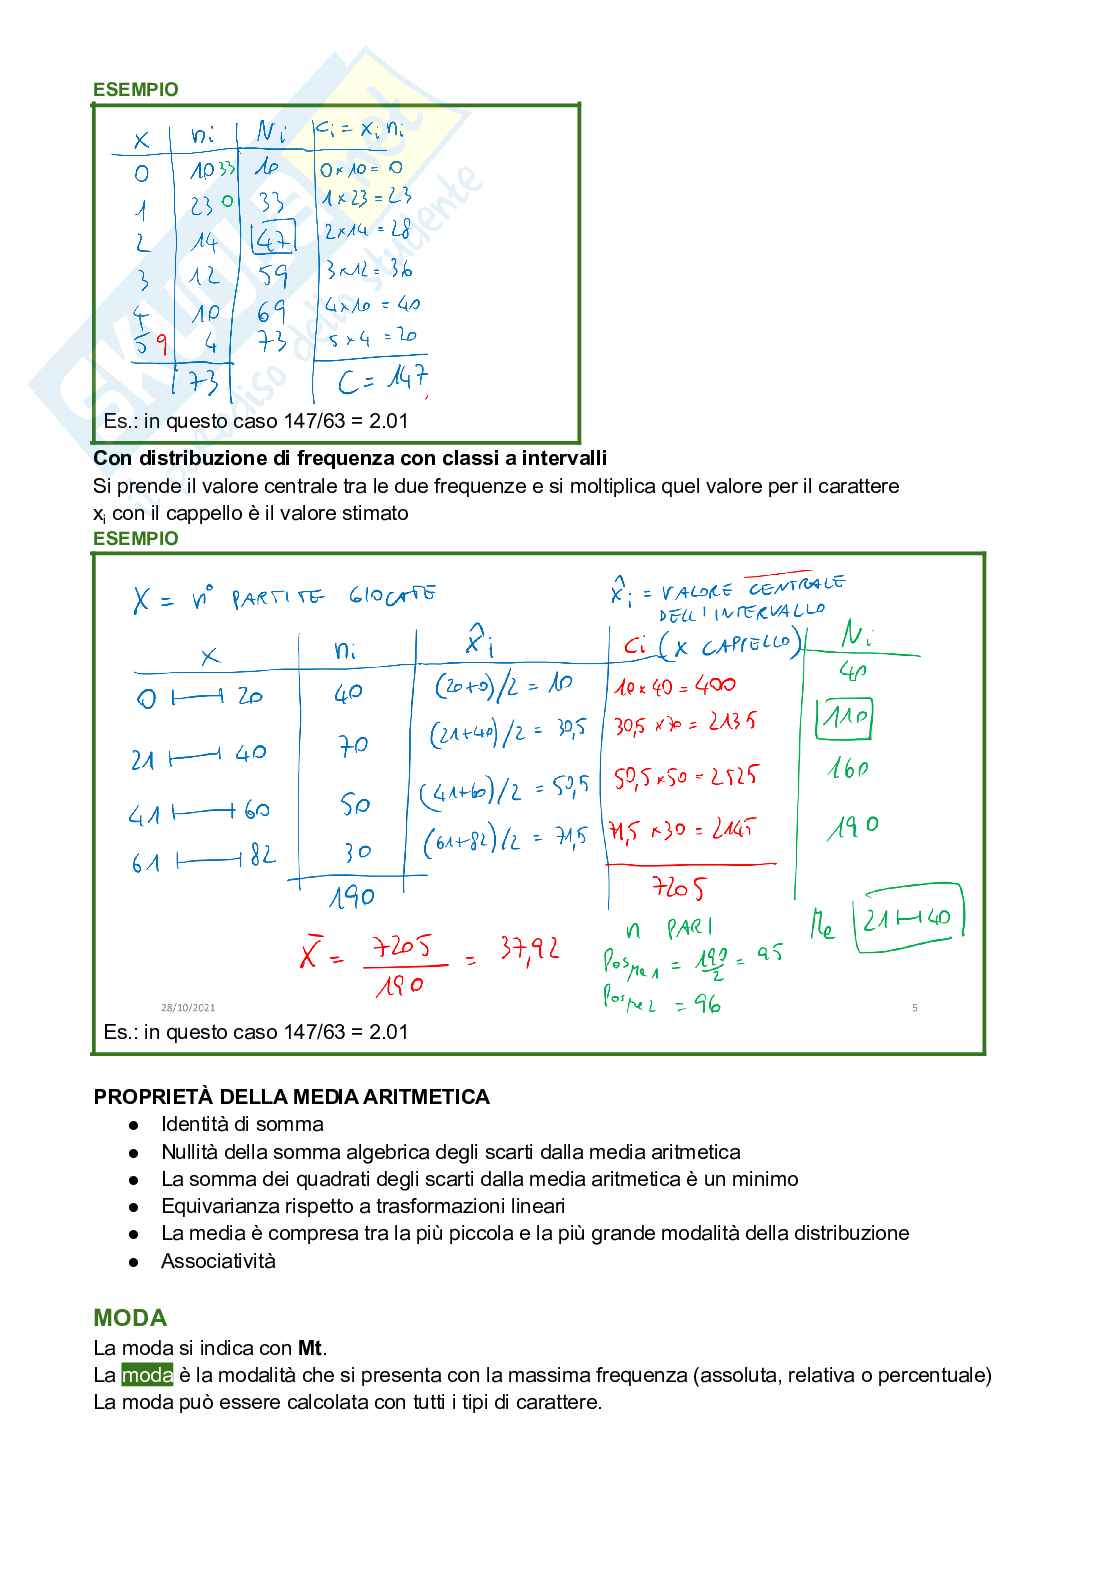 ESEMPIO
x ni Ni ci = xi ni
0 10 33 10 0×10= 0
1 23 0 33 1×23=23
2 14 47 2×14 = 28
3 12 59 3×12= 36
4 10 69 4×10 = 40
5 9 4 73 5×4 = 20
73 C = 147
Es.: in questo caso 147/63 = 2.01
Con distribuzione di frequenza con classi a intervalli
Si prende il valore centrale tra le due frequenze e si moltiplica quel valore per il carattere
xi con il cappello è il valore stimato
ESEMPIO
X = n° PARTITE GIOCATE x̂i = VALORE CENTRALE
DELL'INTERVALLO
x ni x̂i Ci (X CAPPELLO) Ni
0 ⊢⊣ 20 40 (20+0)/2 = 10 10×40=400 40
21 ⊢⊣ 40 70 (21+40)/2 = 30,5 30,5×70=2135 110
41 ⊢⊣ 60 50 (41+60)/2 = 50,5 50,5×50=2525 160
61 ⊢⊣ 82 30 (61+82)/2 = 71,5 71,5×30=2145 190
190 7205
X̄ = 7205/190 = 37,92
n PARI Me 21⊢⊣40
PosMe1 = 190/2 = 95
PosMe2 = 96
28/10/2021 5
Es.: in questo caso 147/63 = 2.01
PROPRIETÀ DELLA MEDIA ARITMETICA
● Identità di somma
● Nullità della somma algebrica degli scarti dalla media aritmetica
● La somma dei quadrati degli scarti dalla media aritmetica è un minimo
● Equivarianza rispetto a trasformazioni lineari
● La media è compresa tra la più piccola e la più grande modalità della distribuzione
● Associatività
MODA
La moda si indica con Mt.
La moda è la modalità che si presenta con la massima frequenza (assoluta, relativa o percentuale)
La moda può essere calcolata con tutti i tipi di carattere.
SKUOLA.net
il paradiso dello studente